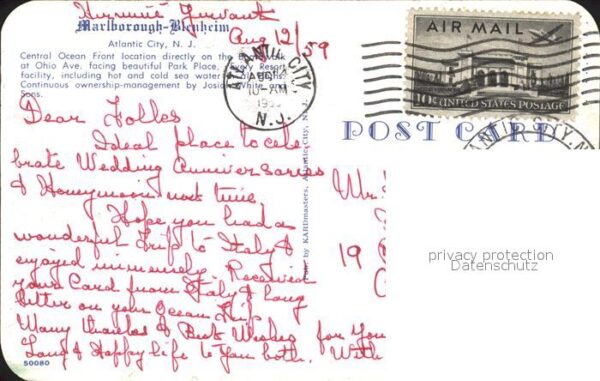 Aug 12/59
Marlborough-Blenheim
Atlantic City, N. J.
Central Ocean Front location directly on the Boardwalk
at Ohio Ave. facing beautiful Park Place. Every Resort
facility, including hot and cold sea water
Continuous ownership-management by Josiah White and
Sons.
ATLANTIC CITY,
AUG
10-AM
N.J.
AIR MAIL
10¢ UNITED STATES POSTAGE
POST CARD
ATLANTIC CITY, N.
Dear Folks
Ideal place to cele
brate Wedding Anniversaries
& Honeymoon next time.
Hope you had a
wonderful trip to Italy &
enjoyed immensely. Received
your Card from Italy & long
letter on your Ocean Trip
Many thanks & Best Wishes for You
Long & Happy life to You both. With
Mr.
19
Made by KARDmasters, Atlantic City, N. J.
privacy protection
Datenschutz
50080